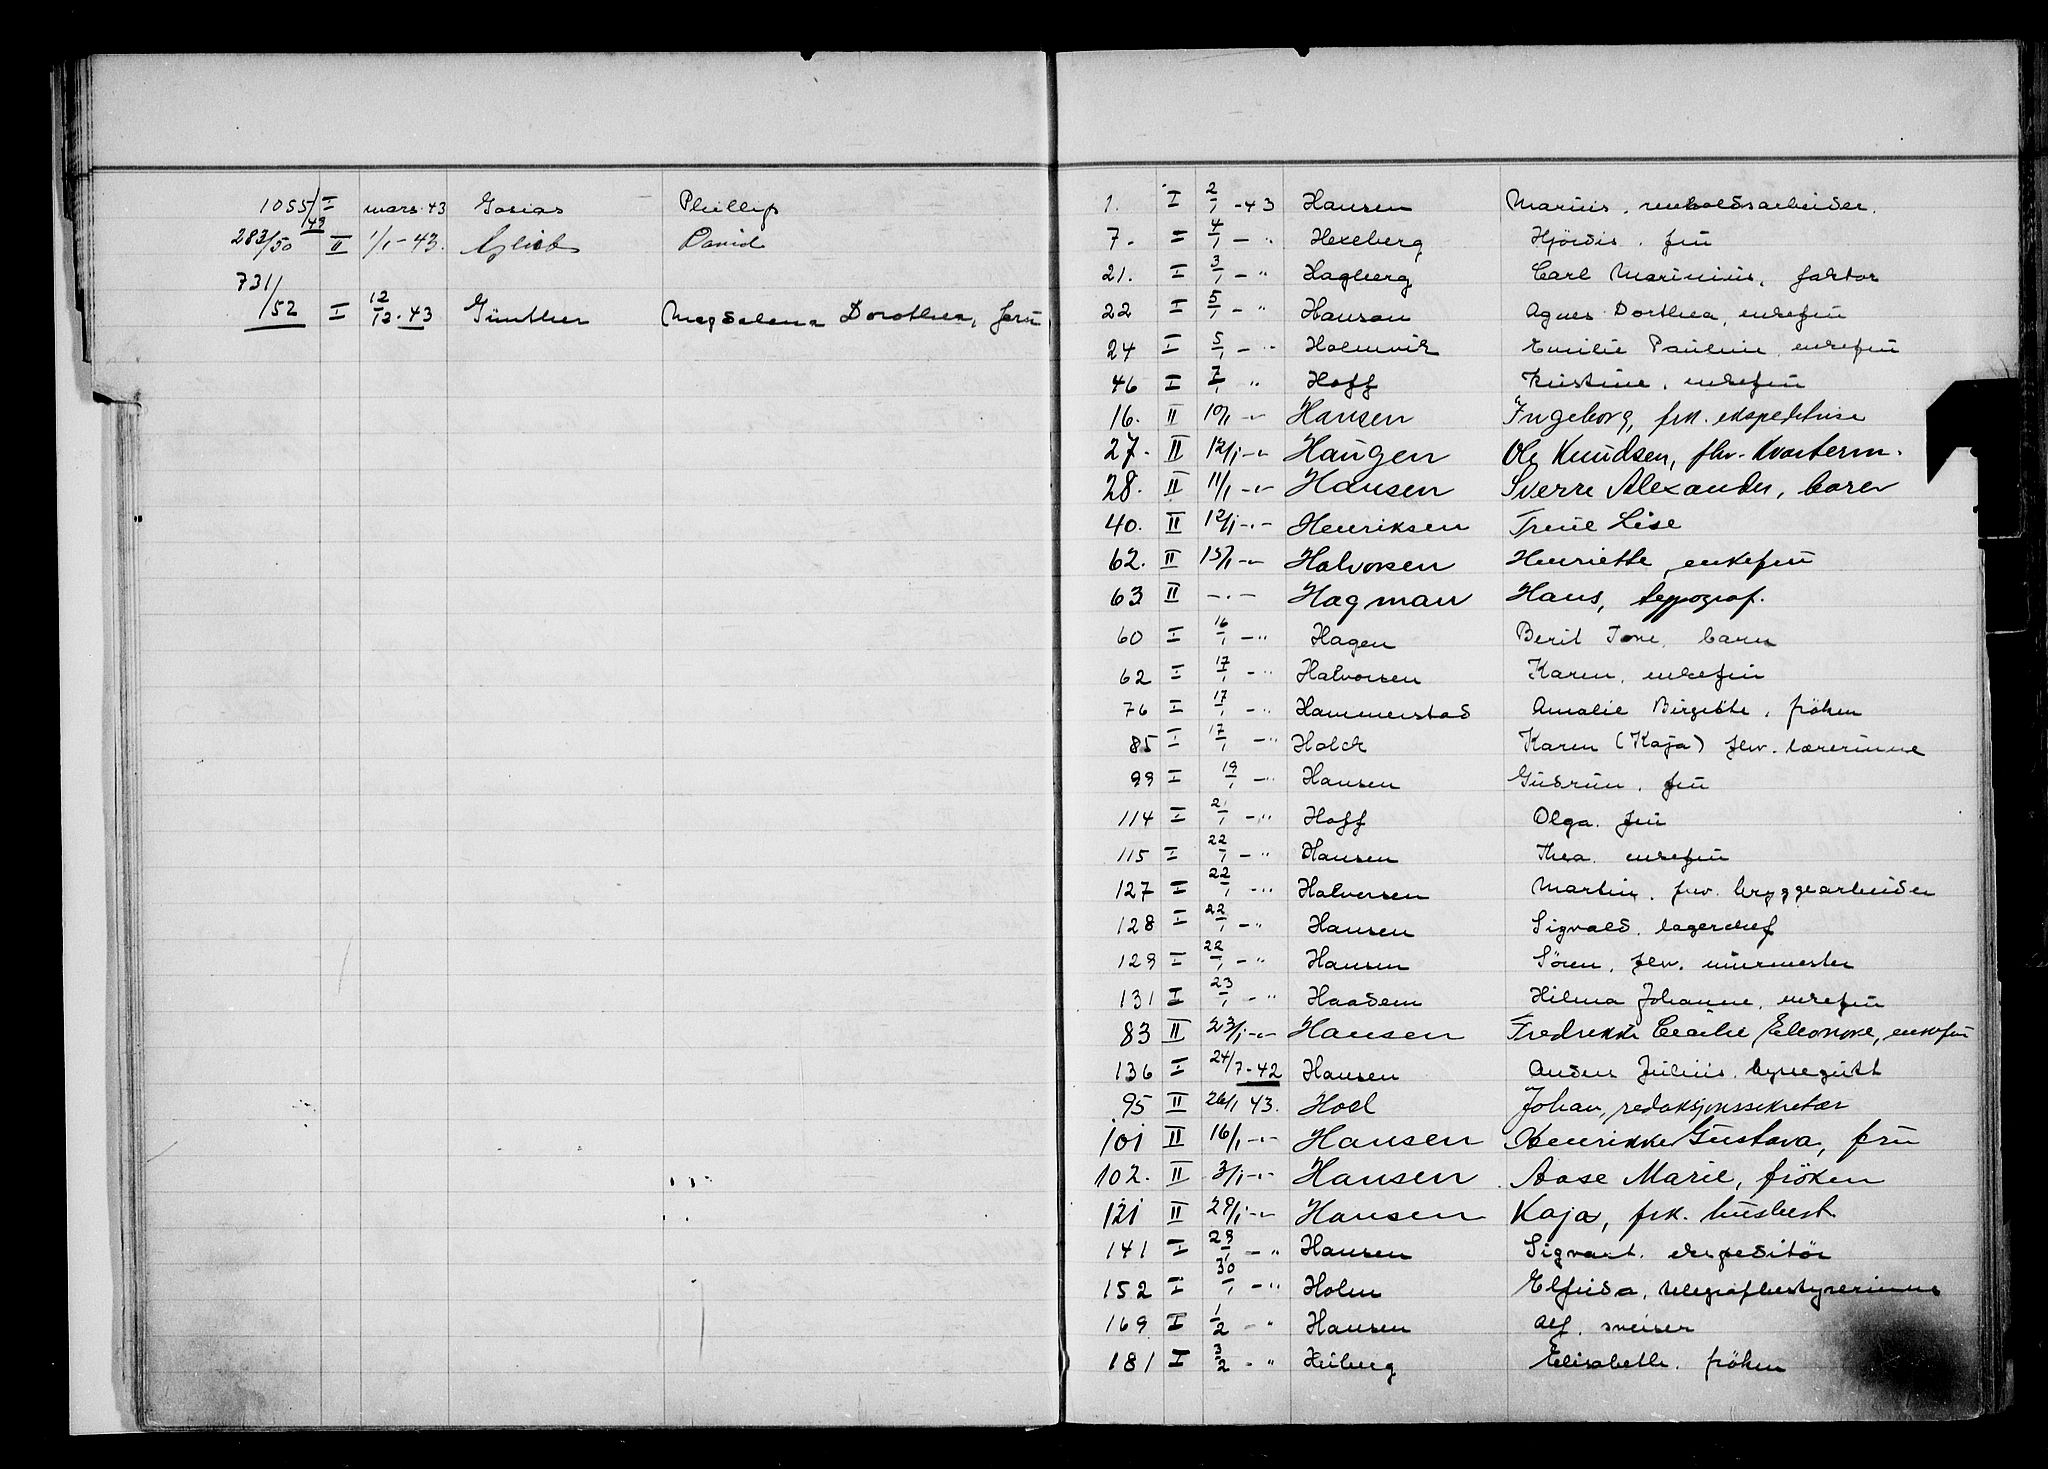 1055/49 I mars-43 Gosias Phillip
283/50 II 1/1-43. David
731/52 I 12/12-43 Günther Magdalena Dorothea, fru
1. I 2/1 -43 Hansen Marius, renholdsarbeider.
7. I 4/1 - " Hexeberg Hjördis, fru
21. I 3/1 - " Hagberg Carl Marinius, faktor
22 I 5/1 - " Hanson Agnes Dorthea, enkefru
24 I 5/1 - " Holmvik Emilie Pauline, enkefru
46 I 7/1 " Hoff Kristine, enkefru
16. II 10/1 -"- Hansen Ingeborg, frk. ekspeditrise
27. II 12/1 -"- Haugen Ole Knudsen, fhv. kvarterm.
28. II 11/1 -"- Hansen Sverre Alexander, barn
40. II 12/1 -"- Henriksen Trine Lise
62. II 15/1 -"- Halvorsen Henriette, enkefru
63 II -"- Hagman Hans, typograf.
60 I 16/1 - " Hagen Beril Tove, barn
62 I 17/1 - " Halvorsen Karen, enkefru
76 I 17/1 - " Hammerstad Amalie Birgitte, fröken
85 I 17/1 - " Holck Karen (Kaja) fhv. lærerinne
99 I 19/1 - " Hansen Gudrun, fru
114 I 21/1 - " Hoff Olga, fru
115 I 22/1 - " Hansen Thea, enkefru
127 I 22/1 - " Halvorsen Martin, fhv. bryggearbeider
128 I 22/1 - " Hansen Sigvald, lagerchef
129 I 22/1 - " Hansen Sören, fhv. murmester
131 I 23/1 - " Haadem Hilma Johanne, enkefru
83 II 23/1 -"- Hansen Fredrikke Cecilie Eleonore, enkefru
136 I 24/7-42 Hansen Anders Julius, byssegutt
95 II 26/1 43. Hoel Johan, redaksjonssekretær
101 II 16/1 -"- Hansen Henrikke Gustava, fru
102. II 3/1 -"- Hansen Aase Marie, fröken
121 II 29/1 -"- Hansen Kaja, frk. husbest
141 I 29/1 - " Hansen Sigvart, ekspeditör
152 I 30/1 - " Holm Elfrida, telegrafbestyrerinne
169 I 1/2 - " Hansen Alf, sveiser
181 I 3/2 - " Heiberg Elisabeth, fröken